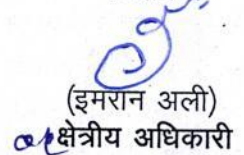 (इमरान अली)
क्षेत्रीय अधिकारी